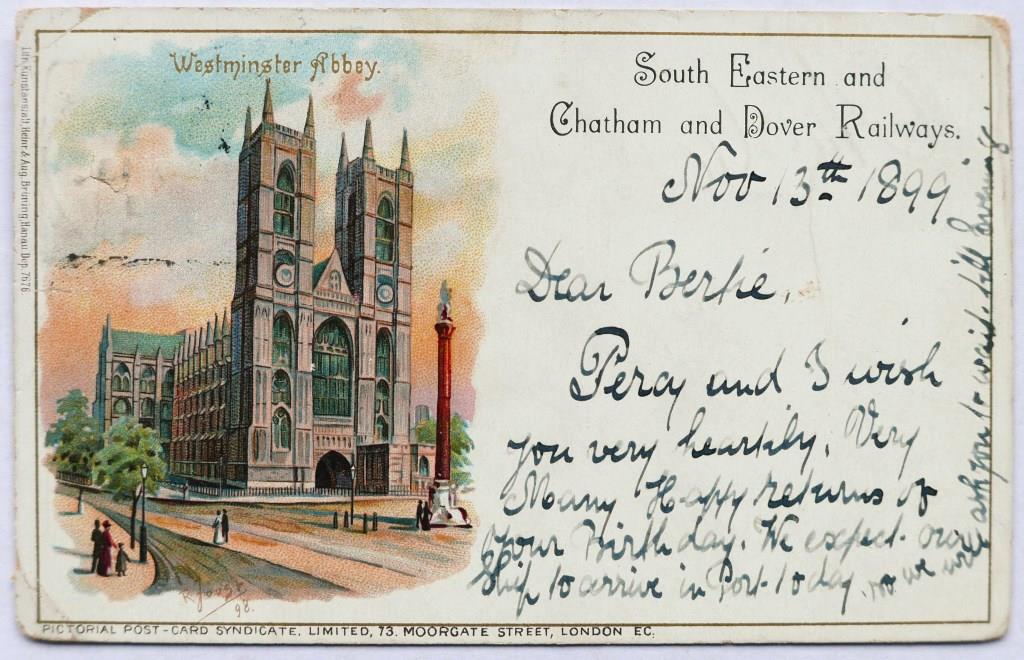 Westminster Abbey.
South Eastern and
Chatham and Dover Railways.
Nov 13th 1899
Dear Bertie,
Percy and I wish
you very heartily, Very
Many Happy returns of
your Birthday. We expect our
Ship to arrive in Port to day, so we will
ask you to wait till Evening
R Jobst
98.
PICTORIAL POST-CARD SYNDICATE, LIMITED, 73. MOORGATE STREET, LONDON EC.
Lith. Kunstanstalt Heinr & Aug. Brüning, Hanau Dep. 7676